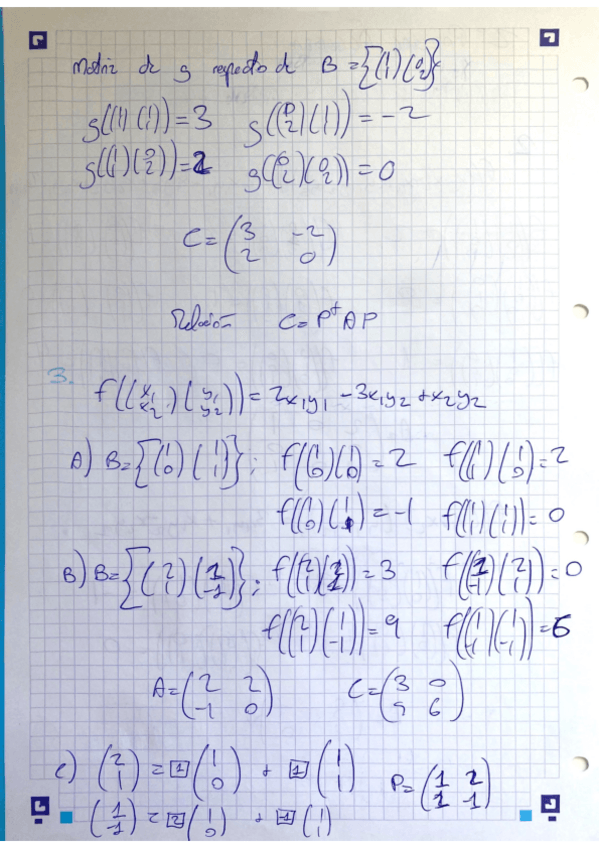 Matriz de g respecto de B = {(1 1) (0 2)}
g((1 1) (1 1)) = 3 g((0 2) (1 1)) = -2
g((1 1) (0 2)) = 2 g((0 2) (0 2)) = 0
C = (3 -2
2 0)
Relación C = P^t A P
3.
f((x₁ x₂) (y₁ y₂)) = 2x₁y₁ - 3x₁y₂ + x₂y₂
A) B = {(1 0) (1 1)}; f((1 0) (1 0)) = 2 f((1 1) (1 0)) = 2
f((1 0) (1 1)) = -1 f((1 1) (1 1)) = 0
B) B = {(2 1) (1 -1)}; f((2 1) (2 1)) = 3 f((1 -1) (2 1)) = 0
f((2 1) (1 -1)) = 9 f((1 -1) (1 -1)) = 6
A = (2 2 C = (3 0
-1 0) 9 6)
c) (2 1) = 1 (1 0) + 1 (1 1) P = (1 2
1 -1)
(1 -1) = 2 (1 0) + -1 (1 1)